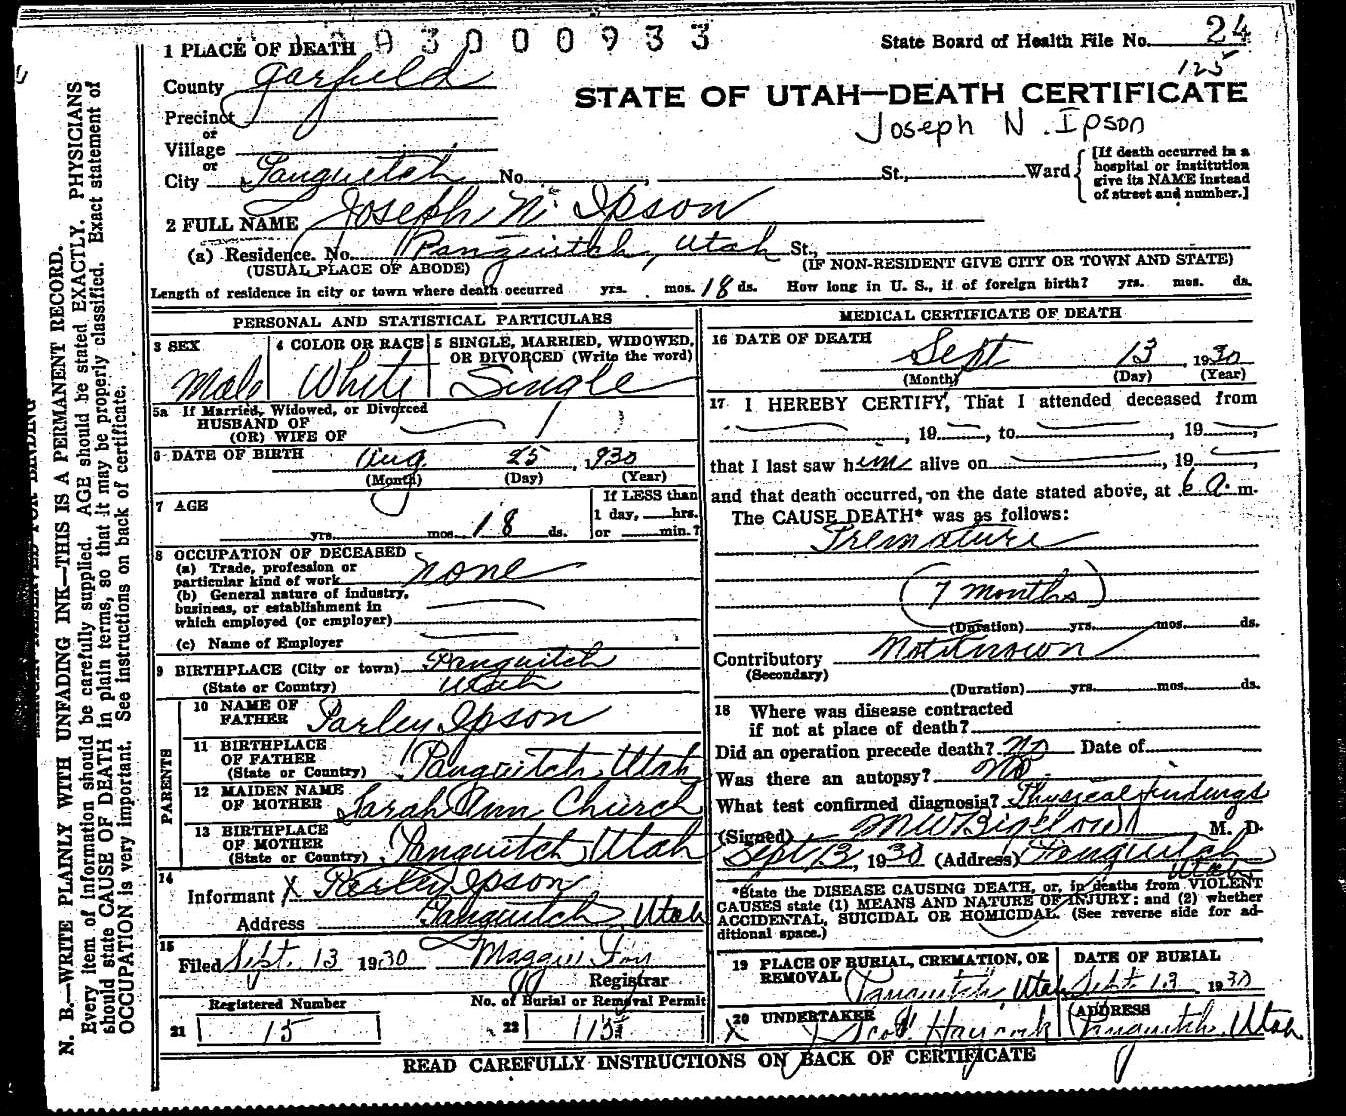 93000933
State Board of Health File No. 24
125
1 PLACE OF DEATH
County Garfield
STATE OF UTAH—DEATH CERTIFICATE
Joseph N. Ipson
Precinct
or
Village
or
City Panguitch No. , St., Ward
[If death occurred in a
hospital or institution
give its NAME instead
of street and number.]
2 FULL NAME Joseph N. Ipson
(a) Residence. No. Panguitch, Utah St.,
(USUAL PLACE OF ABODE) (IF NON-RESIDENT GIVE CITY OR TOWN AND STATE)
Length of residence in city or town where death occurred yrs. mos. 18 ds. How long in U. S., if of foreign birth? yrs. mos. ds.
PERSONAL AND STATISTICAL PARTICULARS
3 SEX
Male
4 COLOR OR RACE
White
5 SINGLE, MARRIED, WIDOWED,
OR DIVORCED (Write the word)
Single
5a If Married, Widowed, or Divorced
HUSBAND OF
(OR) WIFE OF
6 DATE OF BIRTH Aug. 25, 1930
(Month) (Day) (Year)
7 AGE
yrs. mos. 18 ds.
If LESS than
1 day, hrs.
or min.?
8 OCCUPATION OF DECEASED
(a) Trade, profession or
particular kind of work none
(b) General nature of industry,
business, or establishment in
which employed (or employer)
(c) Name of Employer
9 BIRTHPLACE (City or town) Panguitch
(State or Country) Utah
PARENTS
10 NAME OF
FATHER Parley Ipson
11 BIRTHPLACE
OF FATHER
(State or Country) Panguitch, Utah
12 MAIDEN NAME
OF MOTHER Sarah Ann Church
13 BIRTHPLACE
OF MOTHER
(State or Country) Panguitch, Utah
14
Informant X Parley Ipson
Address Panguitch, Utah
15
Filed Sept. 13 1930 Maggie Foy
Registrar
Registered Number
21 15
No. of Burial or Removal Permit
22 115
MEDICAL CERTIFICATE OF DEATH
16 DATE OF DEATH
Sept 13, 1930
(Month) (Day) (Year)
17 I HEREBY CERTIFY, That I attended deceased from
, 19 , to , 19 ,
that I last saw him alive on , 19 ,
and that death occurred, on the date stated above, at 6 a. m.
The CAUSE DEATH* was as follows:
Premature
(7 months)
(Duration) yrs. mos. ds.
Contributory Not Known
(Secondary)
(Duration) yrs. mos. ds.
18 Where was disease contracted
if not at place of death?
Did an operation precede death? No Date of
Was there an autopsy? No
What test confirmed diagnosis? Physical findings
(Signed) M W Bigelow M. D.
Sept 13, 1930 (Address) Panguitch
Utah
*State the DISEASE CAUSING DEATH, or, in deaths from VIOLENT
CAUSES state (1) MEANS AND NATURE OF INJURY: and (2) whether
ACCIDENTAL, SUICIDAL OR HOMICIDAL. (See reverse side for ad-
ditional space.)
19 PLACE OF BURIAL, CREMATION, OR
REMOVAL Panguitch, Utah
DATE OF BURIAL
Sept 13 1930
20 UNDERTAKER
X Haycock
ADDRESS
Panguitch, Utah
READ CAREFULLY INSTRUCTIONS ON BACK OF CERTIFICATE
N. B.—WRITE PLAINLY WITH UNFADING INK—THIS IS A PERMANENT RECORD.
Every item of information should be carefully supplied. AGE should be stated EXACTLY. PHYSICIANS
should state CAUSE OF DEATH in plain terms, so that it may be properly classified. Exact statement of
OCCUPATION is very important. See instructions on back of certificate.